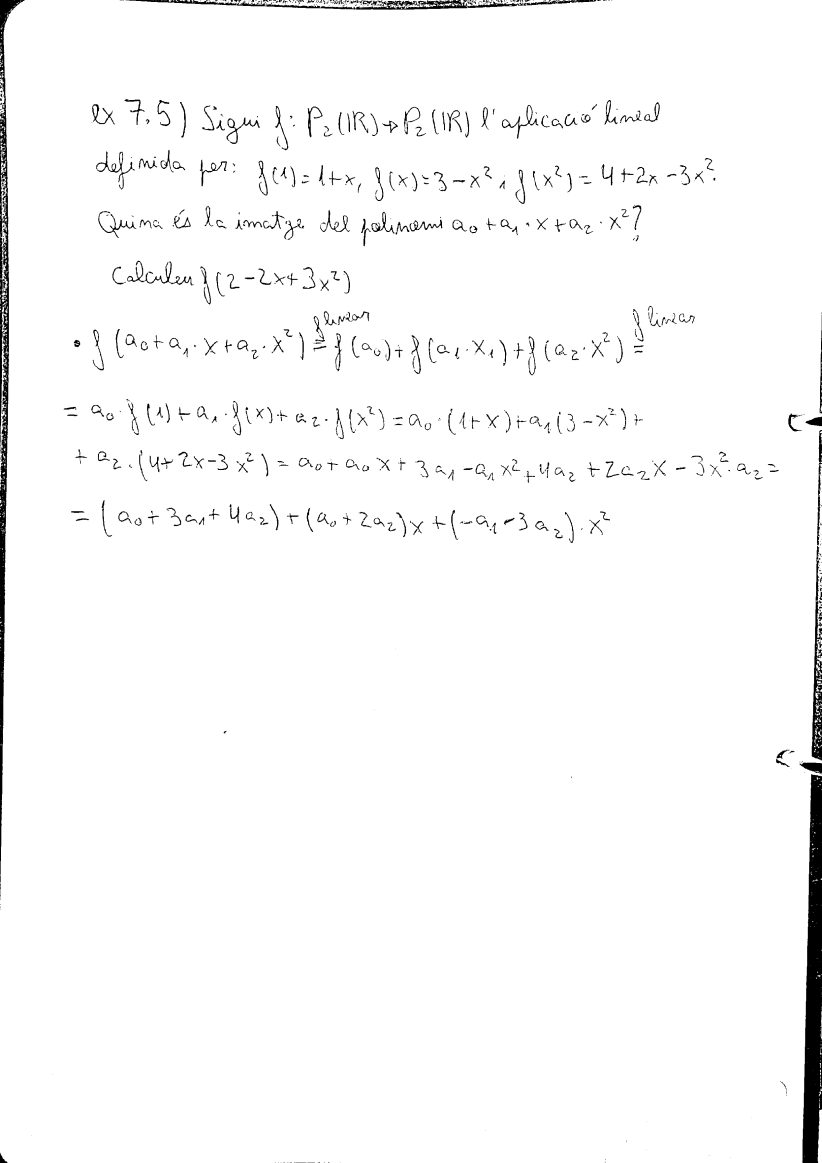 ex 7.5) Sigui f: P₂(IR)→P₂(IR) l'aplicació lineal
definida per: f(1)=1+x, f(x)=3-x², f(x²)=4+2x-3x².
Quina és la imatge del polinomi a₀+a₁·x+a₂·x²?
Calculeu f(2-2x+3x²)
• f(a₀+a₁·x+a₂·x²) =^{f linear} f(a₀)+f(a₁·x₁)+f(a₂·x²) =^{f linear}
= a₀·f(1)+a₁·f(x)+a₂·f(x²)=a₀·(1+x)+a₁(3-x²)+
+ a₂·(4+2x-3x²)= a₀+a₀x+3a₁-a₁x²+4a₂+2a₂x-3x²·a₂=
= (a₀+3a₁+4a₂)+(a₀+2a₂)x+(-a₁-3a₂)·x²